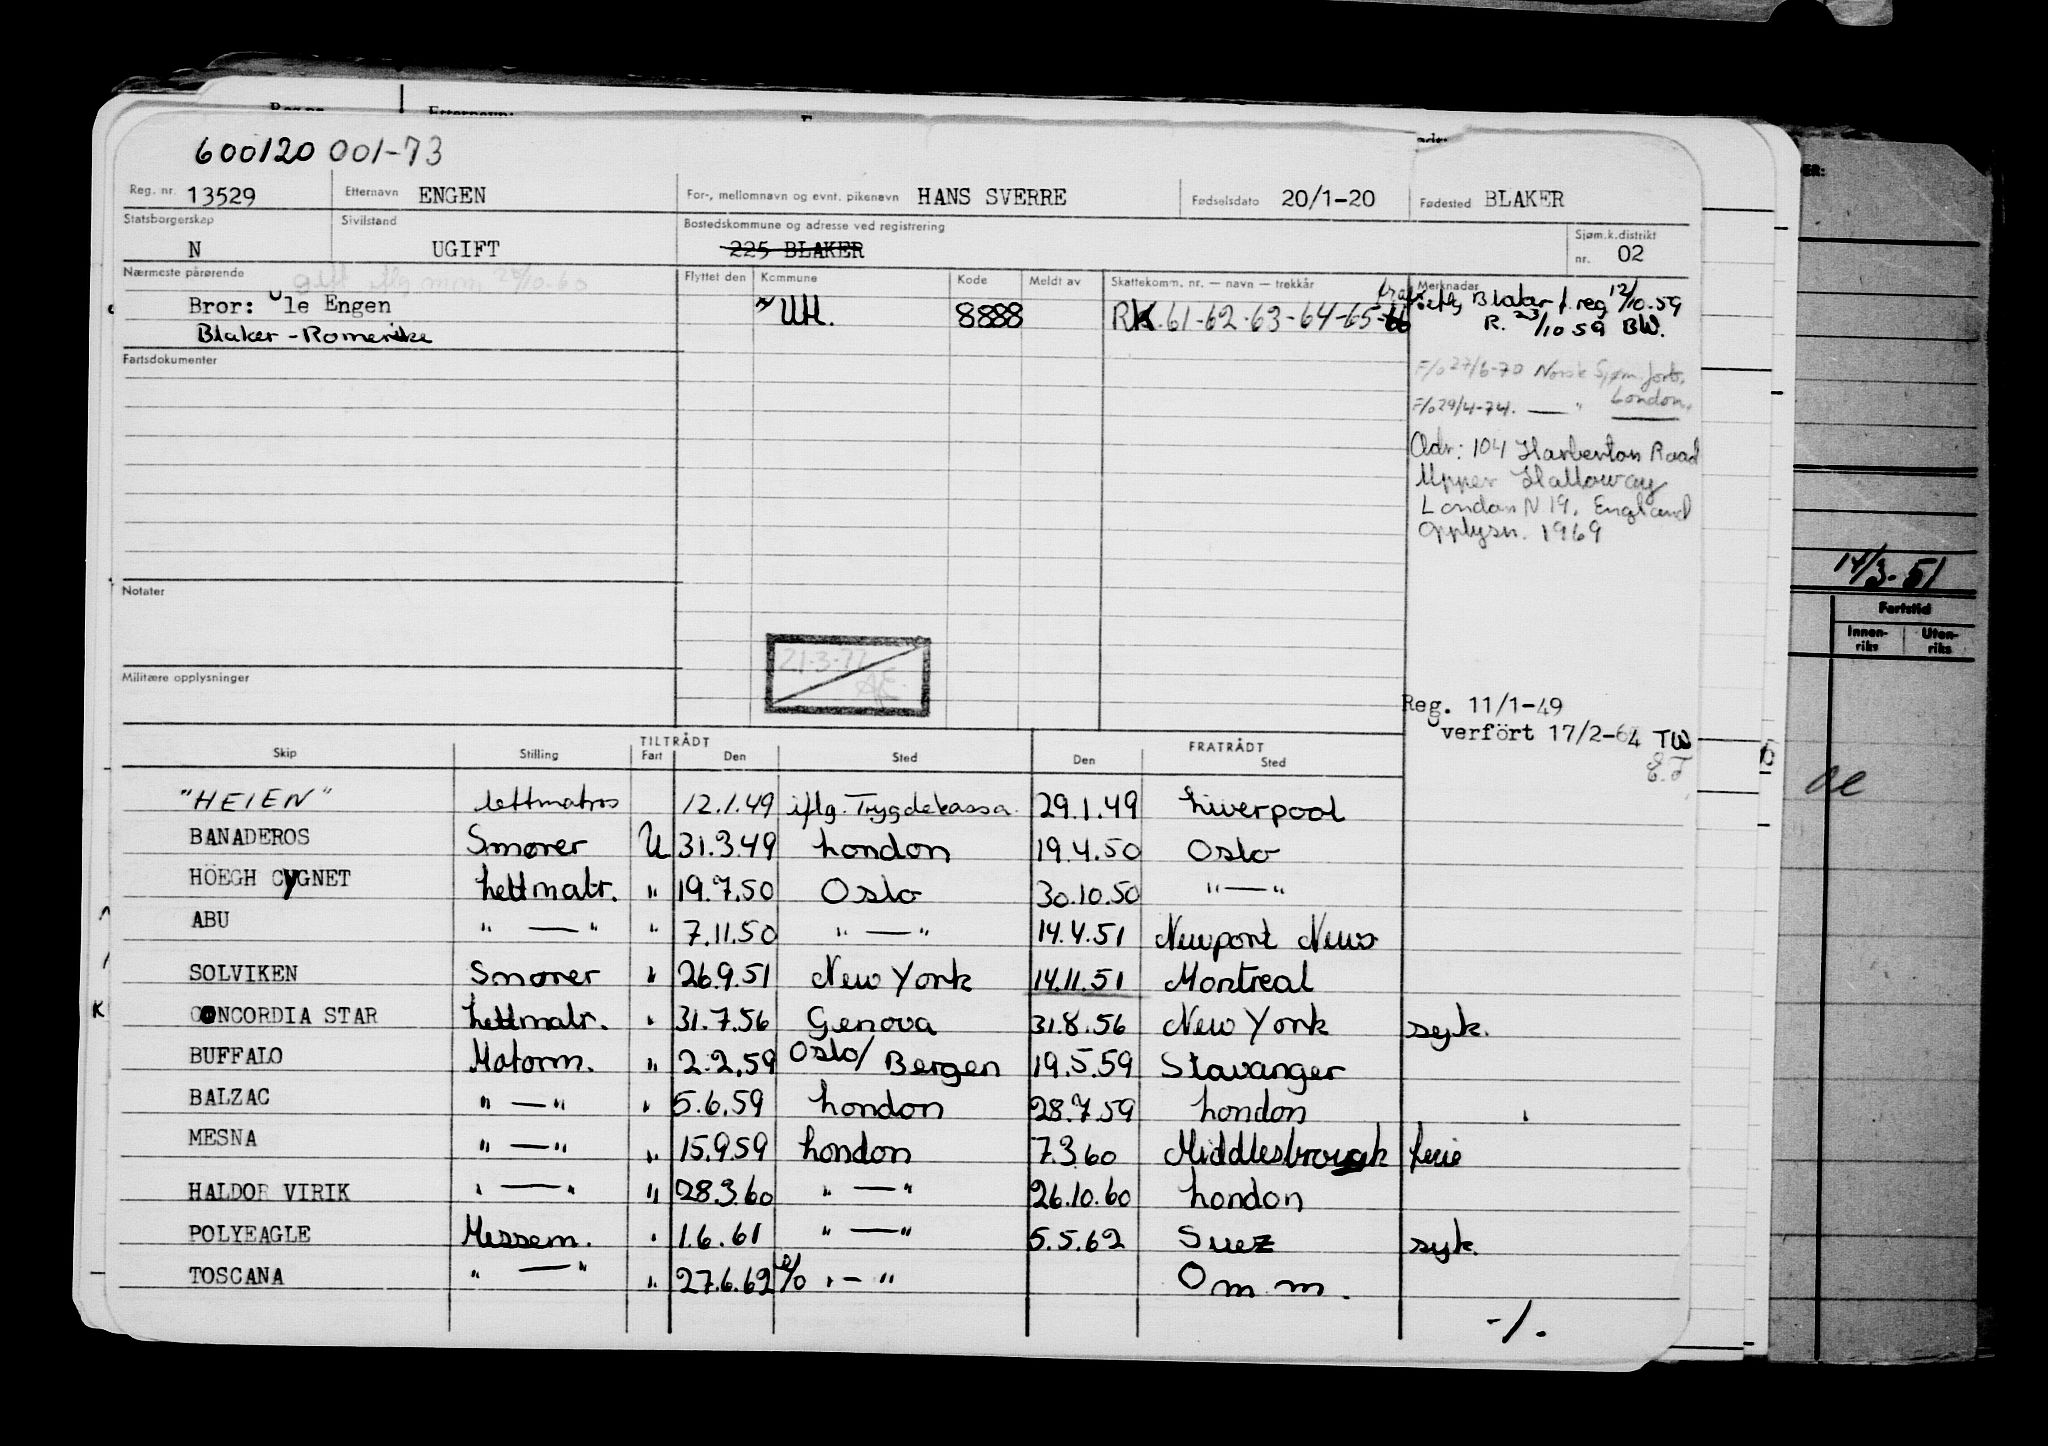 600120 001-73
Reg. nr. 13529 Etternavn ENGEN For-, mellomnavn og evnt. pikenavn HANS SVERRE Fødselsdato 20/1-20 Fødested BLAKER
Statsborgerskap N Sivilstand UGIFT Bostedskommune og adresse ved registrering 225 BLAKER Sjøm.k.distrikt nr. 02
Nærmeste pårørende Flyttet den Kommune Kode Meldt av Skattekomm. nr. — navn — trekkår Merknader
gift iflg mm 26/10.60
Bror: Ole Engen UtL. 8888 RK. 61-62-63-64-65-66 iflg Blaker f. reg 12/10.59
Blaker - Romerike R. 23/10 59 BW.
Fartsdokumenter
F/o 27/6-70 Norsk Sjøm. forb. London.
F/o 29/4-74. — "
Adr: 104 Harberton Road
Upper Halloway
London N 19, England
Opplysn. 1969
Notater
21-3-77
Militære opplysninger
Reg. 11/1-49
overfört 17/2-64 TW
E.F
Skip Stilling TILTRÅDT Fart Den Sted FRATRÅDT Den Sted
"HEIEN" lettmatros 12.1.49 iflg. Trygdekassa. 29.1.49 Liverpool
BANADEROS Smører U 31.3.49 London 19.4.50 Oslo
HÖEGH CYGNET Lettmatr. " 19.7.50 Oslo 30.10.50 " — "
ABU " — " " 7.11.50 " — " 14.4.51 Newport News
SOLVIKEN Smører " 26.9.51 New York 14.11.51 Montreal
K CONCORDIA STAR Lettmatr. " 31.7.56 Genova 31.8.56 New York syk.
BUFFALO Motorm. " 2.2.59 Oslo/Bergen 19.5.59 Stavanger
BALZAC " — " " 5.6.59 London 28.7.59 London
MESNA " — " " 15.9.59 London 7.3.60 Middlesbrough ferie
HALDOR VIRIK " — " " 28.3.60 " — " 26.10.60 London
POLYEAGLE Messem. " 1.6.61 " — " 5.5.62 Suez syk.
TOSCANA " — " " 27.6.62 " — " O m. m.
-/.
14/3-51
Fartstid
Innen-riks Uten-riks